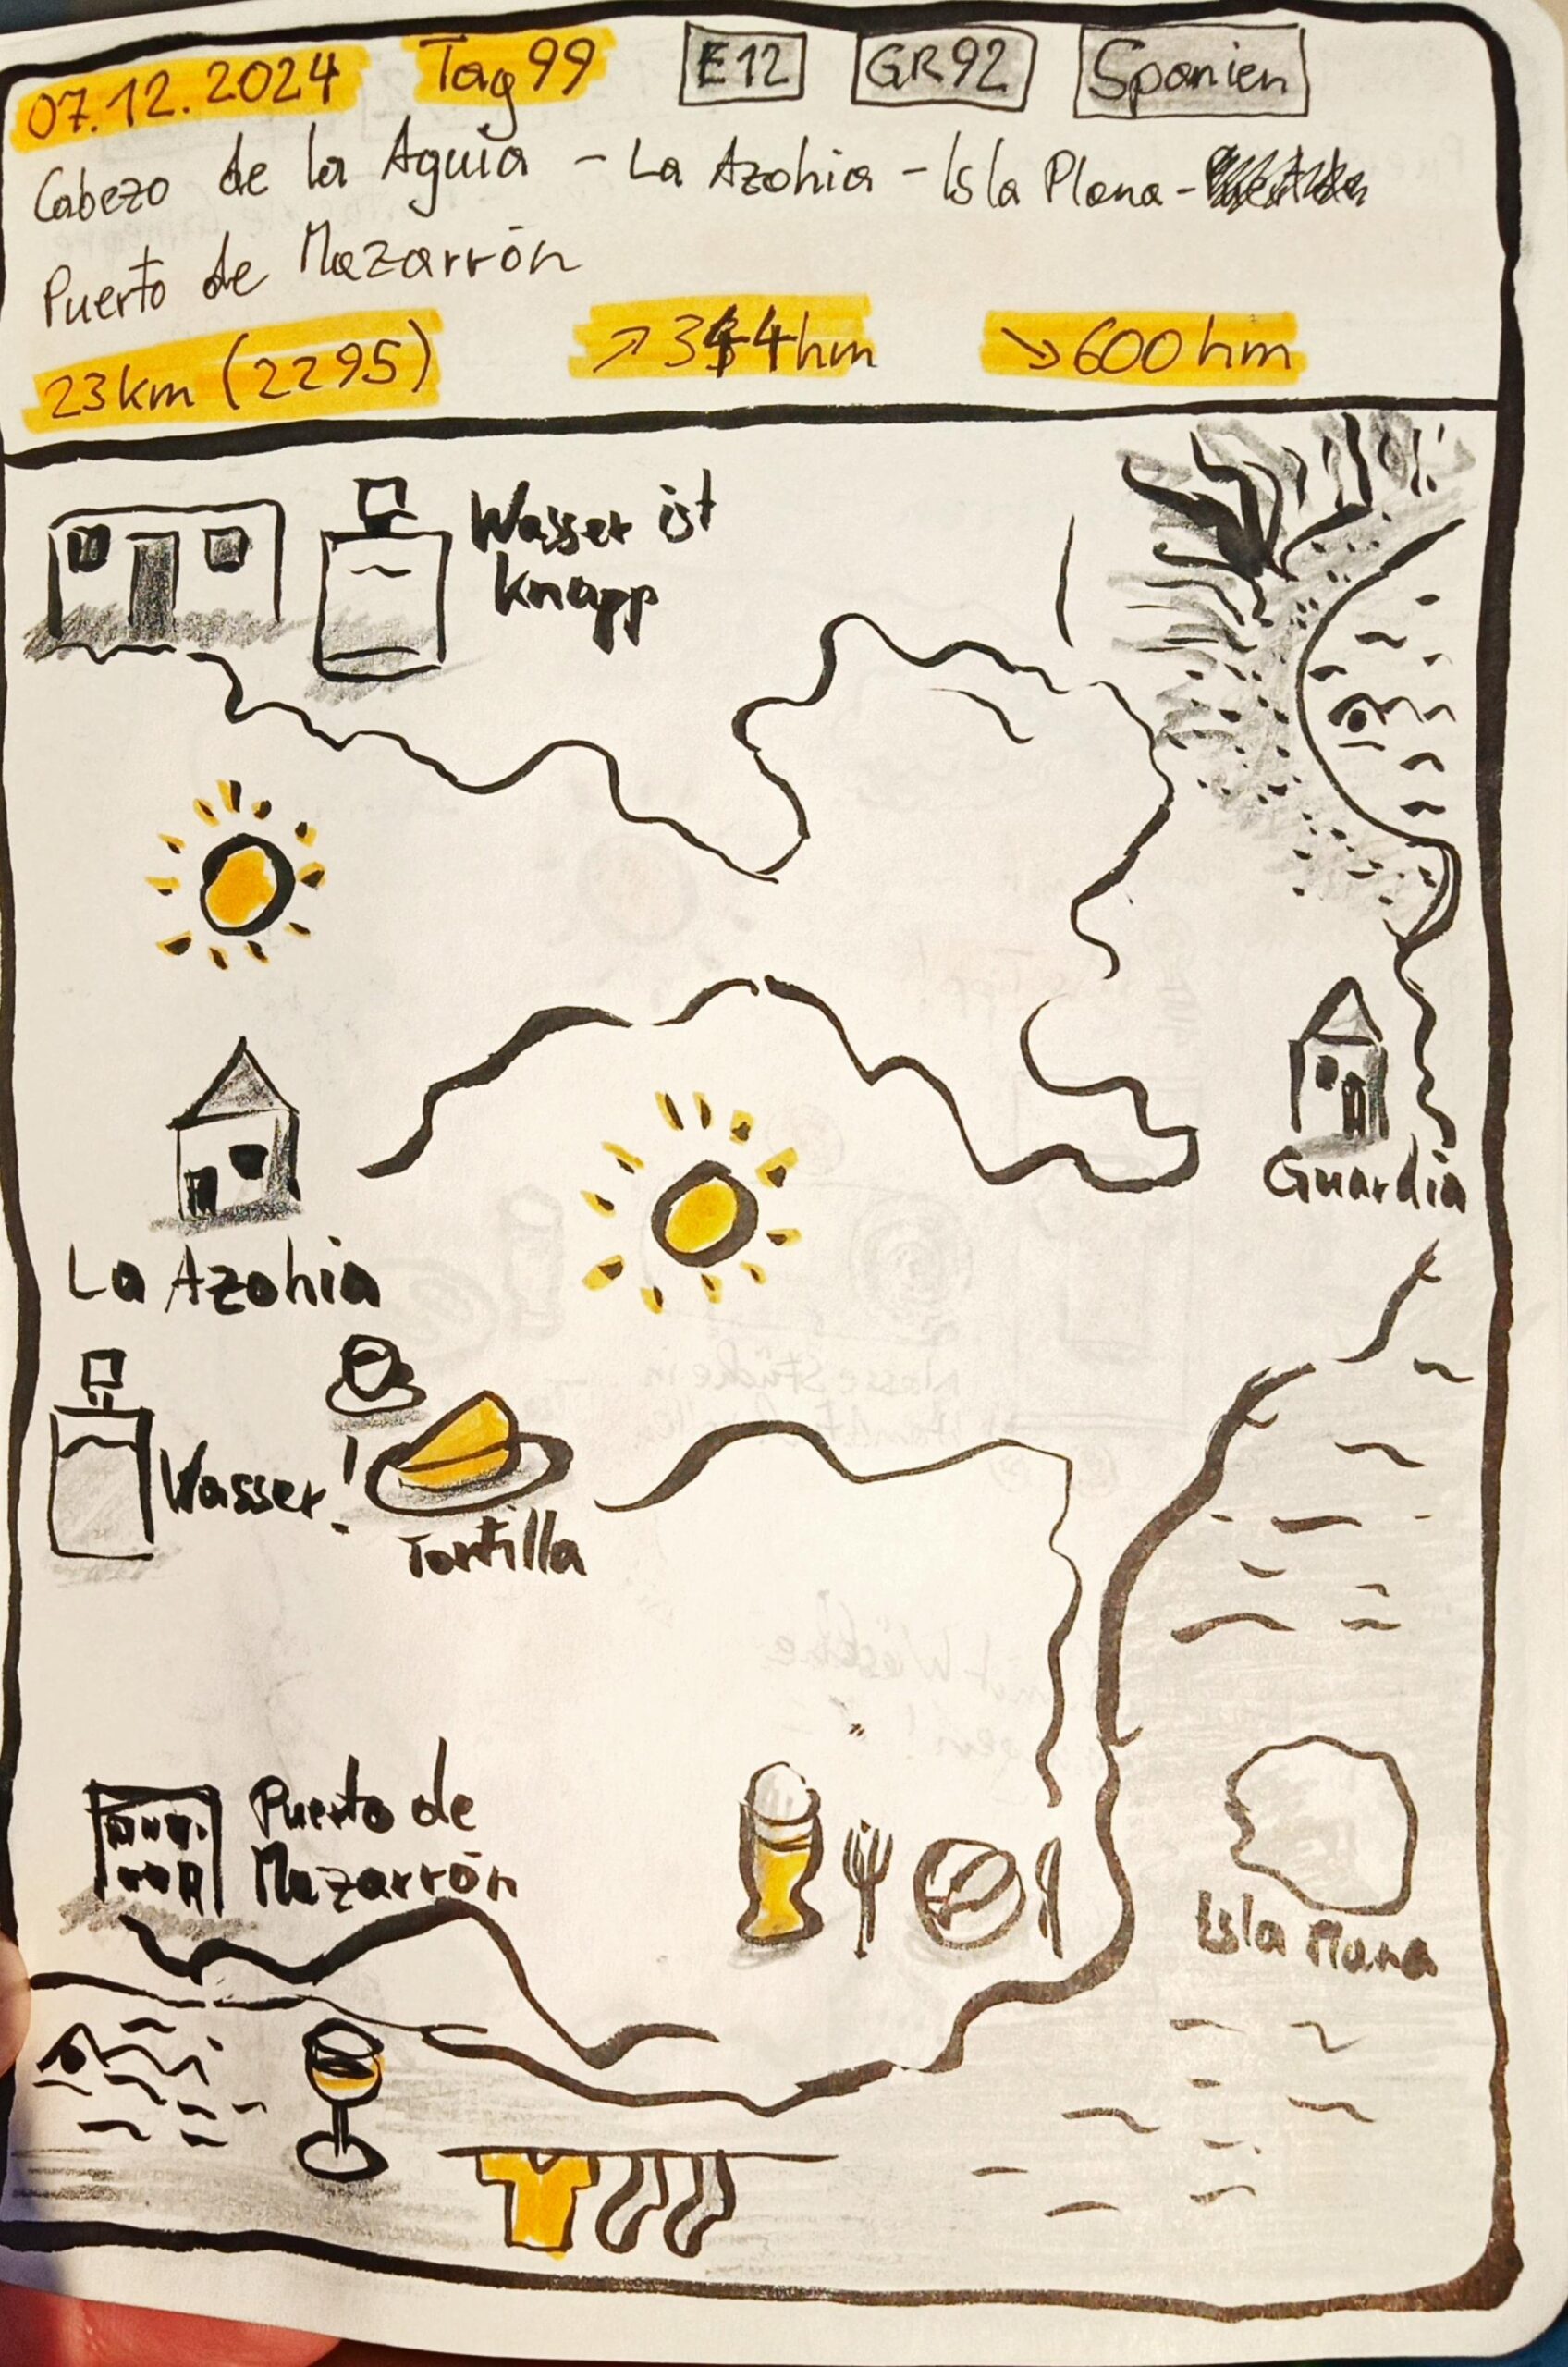 07.12.2024 Tag 99 E12 GR92 Spanien
Cabezo de la Aguia - La Azohia - Isla Plana -
Puerto de Mazarrón
23km (2295) ↗344hm ↘600hm
Wasser ist
knapp
Guardia
La Azohia
Wasser!
Tortilla
Puerto de
Mazarrón
Isla Plana